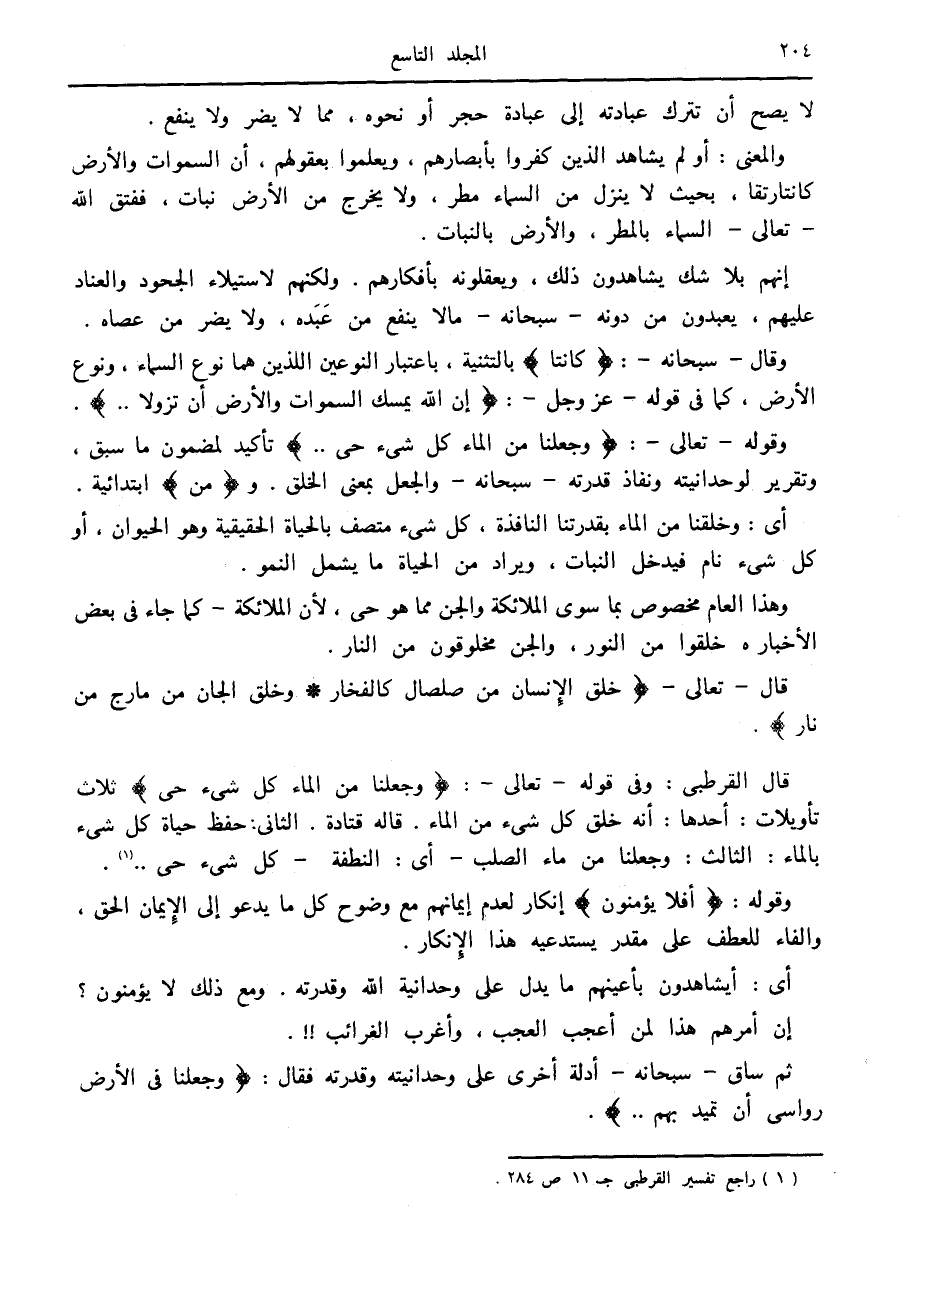 ٢٠٤
المجلد التاسع
لا يصح أن تترك عبادته إلى عبادة حجر أو نحوه ، مما لا يضر ولا ينفع .
والمعنى : أو لم يشاهد الذين كفروا بأبصارهم ، ويعلموا بعقولهم ، أن السموات والأرض
كانتارتقا ، بحيث لا ينزل من السماء مطر ، ولا يخرج من الأرض نبات ، ففتق الله
– تعالى – السماء بالمطر ، والأرض بالنبات .
إنهم بلا شك يشاهدون ذلك ، ويعقلونه بأفكارهم . ولكنهم لاستيلاء الجحود والعناد
عليهم ، يعبدون من دونه – سبحانه – مالا ينفع من عَبَده ، ولا يضر من عصاه .
وقال – سبحانه – : ﴿ كانتا ﴾ بالتثنية ، باعتبار النوعين اللذين هما نوع السماء ، ونوع
الأرض ، كما فى قوله – عز وجل – : ﴿ إن الله يمسك السموات والأرض أن تزولا .. ﴾ .
وقوله – تعالى – : ﴿ وجعلنا من الماء كل شىء حى .. ﴾ تأكيد لمضمون ما سبق ،
وتقرير لوحدانيته ونفاذ قدرته – سبحانه – والجعل بمعنى الخلق . و ﴿ من ﴾ ابتدائية .
أى : وخلقنا من الماء بقدرتنا النافذة ، كل شىء متصف بالحياة الحقيقية وهو الحيوان ، أو
كل شىء نام فيدخل النبات ، ويراد من الحياة ما يشمل النمو .
وهذا العام مخصوص بما سوى الملائكة والجن مما هو حى ، لأن الملائكة – كما جاء فى بعض
الأخبار ه خلقوا من النور ، والجن مخلوقون من النار .
قال – تعالى – ﴿ خلق الإنسان من صلصال كالفخار * وخلق الجان من مارج من
نار ﴾ .
قال القرطبى : وفى قوله – تعالى – : ﴿ وجعلنا من الماء كل شىء حى ﴾ ثلاث
تأويلات : أحدها : أنه خلق كل شىء من الماء . قاله قتادة . الثانى: حفظ حياة كل شىء
بالماء : الثالث : وجعلنا من ماء الصلب – أى : النطفة – كل شىء حى ..(١) .
وقوله : ﴿ أفلا يؤمنون ﴾ إنكار لعدم إيمانهم مع وضوح كل ما يدعو إلى الإيمان الحق ،
والفاء للعطف على مقدر يستدعيه هذا الإنكار .
أى : أيشاهدون بأعينهم ما يدل على وحدانية الله وقدرته . ومع ذلك لا يؤمنون ؟
إن أمرهم هذا لمن أعجب العجب ، وأغرب الغرائب !! .
ثم ساق – سبحانه – أدلة أخرى على وحدانيته وقدرته فقال : ﴿ وجعلنا فى الأرض
رواسى أن تميد بهم .. ﴾ .
( ١ ) راجع تفسير القرطبى جـ ١١ ص ٢٨٤ .